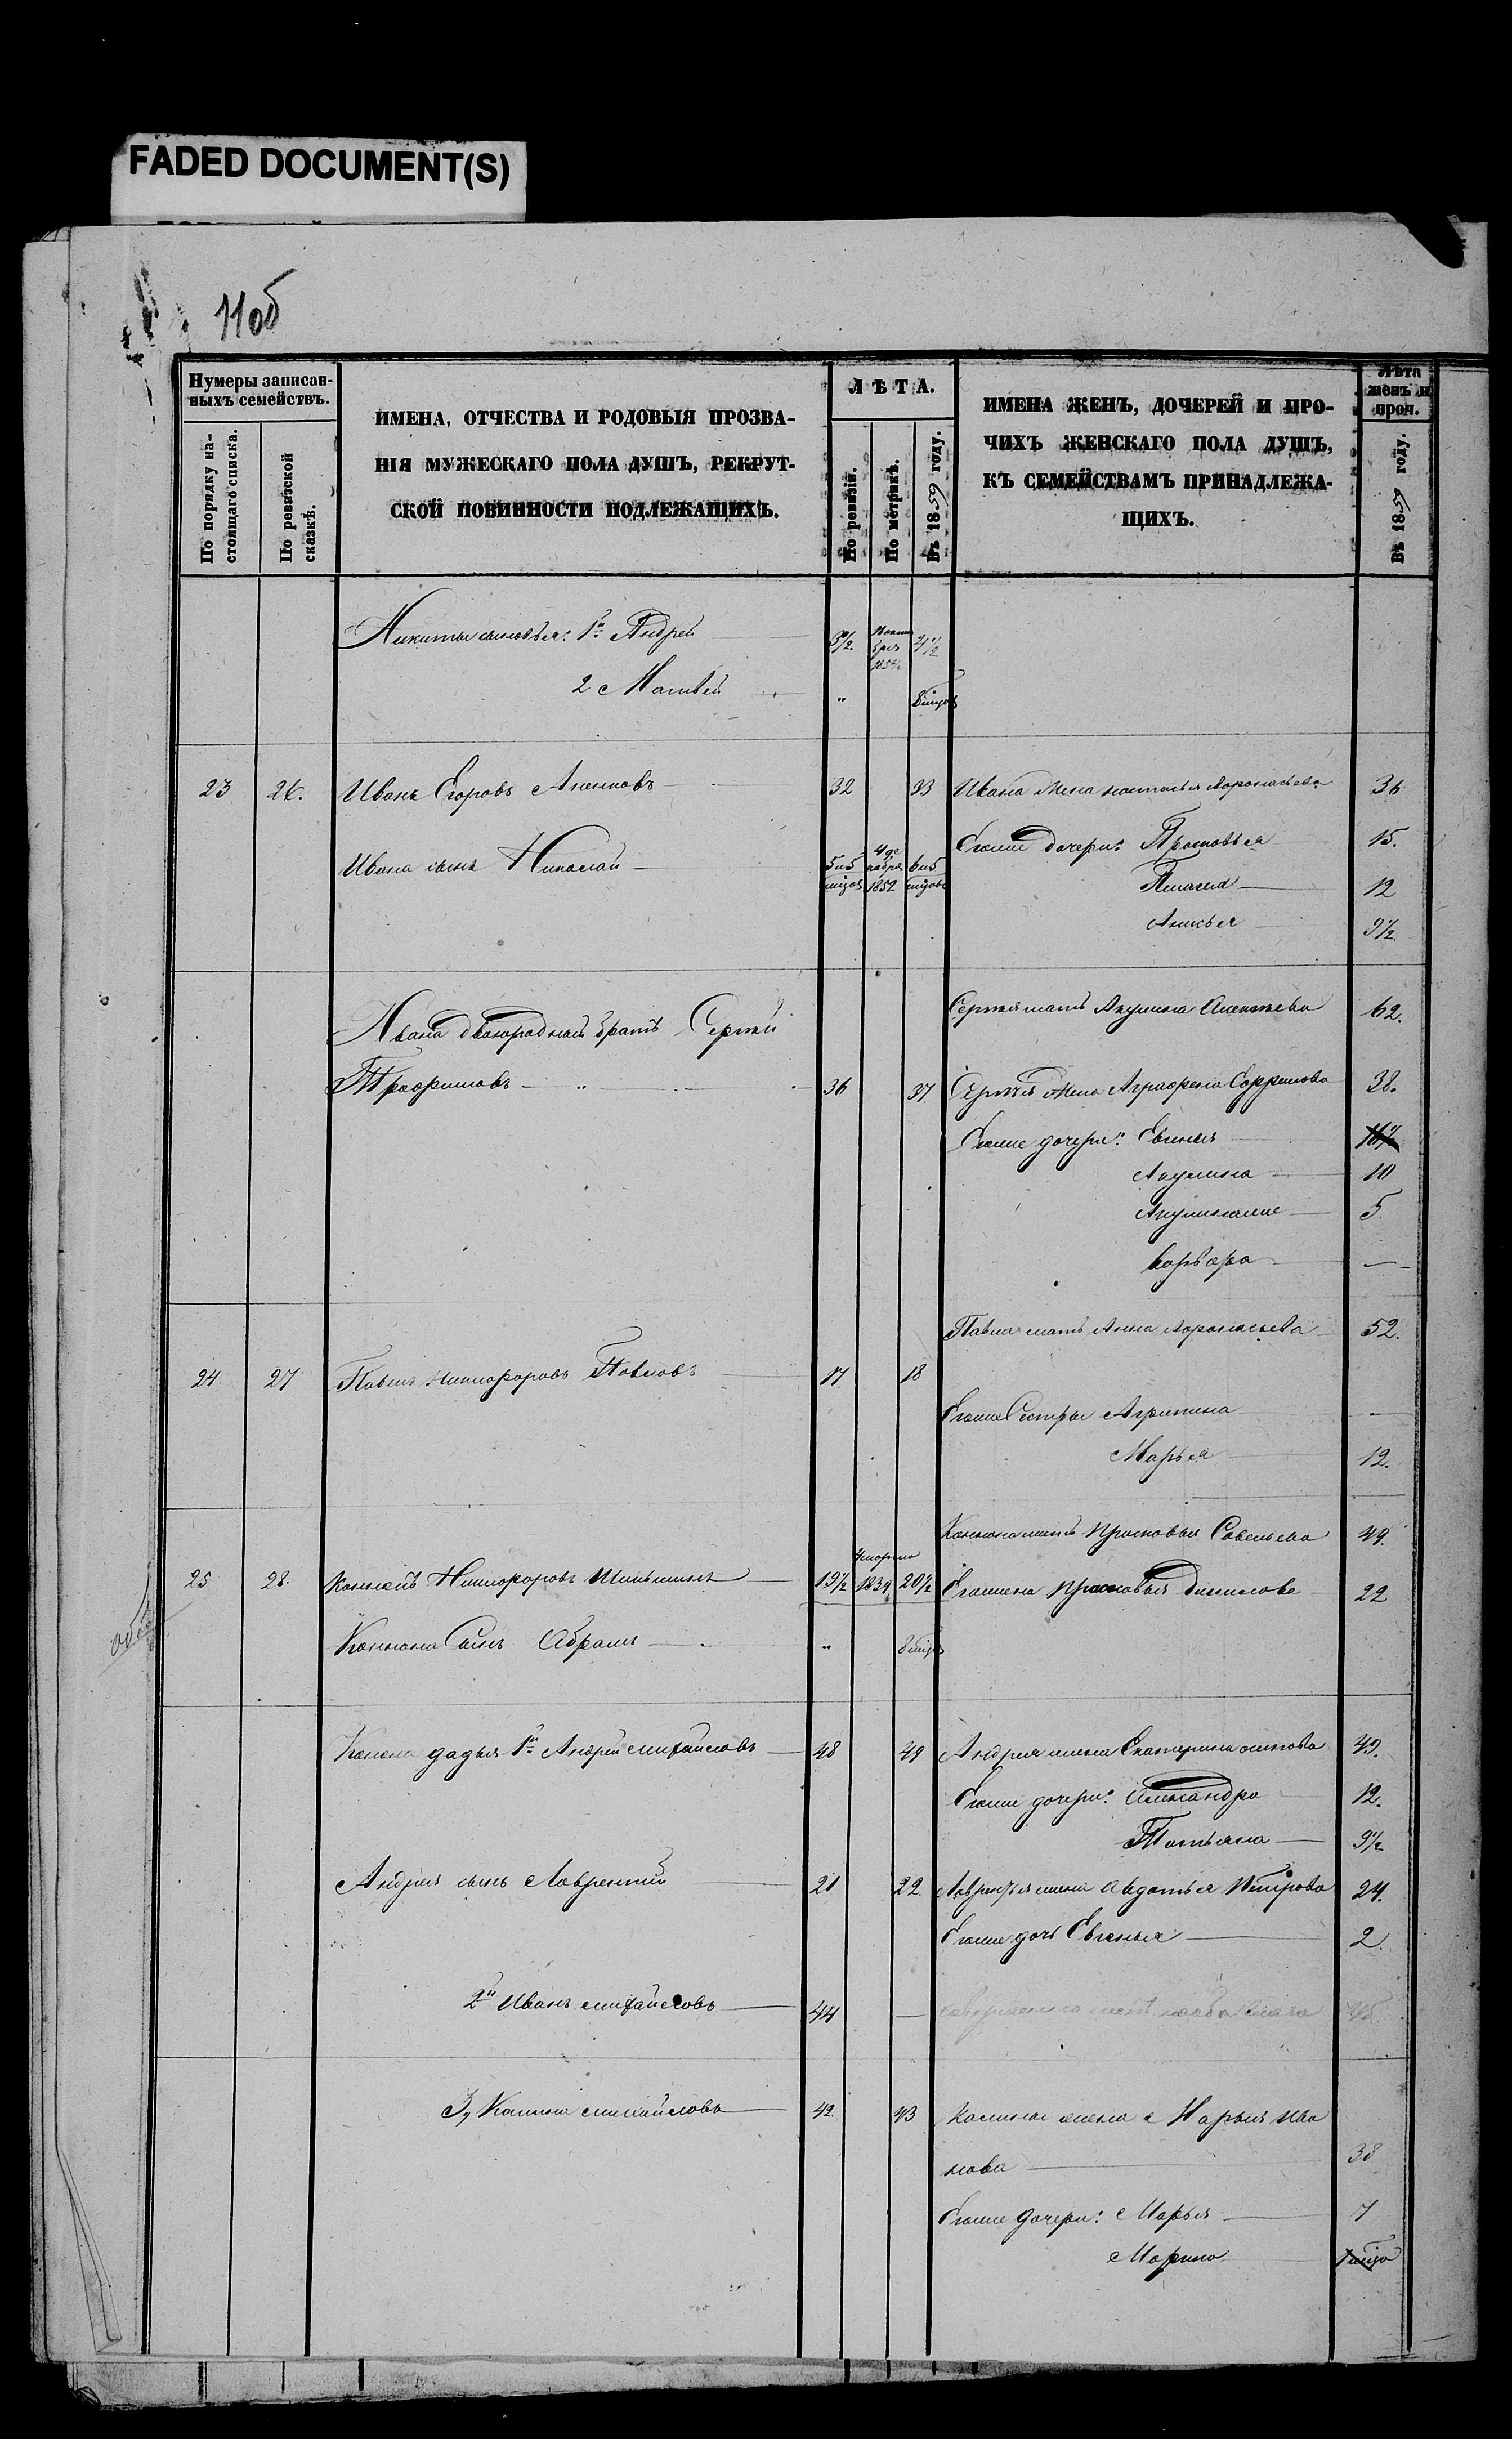 FADED DOCUMENT(S)
11об
Нумеры записан-
ныхъ семействъ.
По порядку на-
стоящаго списка.
По ревизской
сказкѣ.
ИМЕНА, ОТЧЕСТВА И РОДОВЫЯ ПРОЗВА-
НІЯ МУЖЕСКАГО ПОЛА ДУШЪ, РЕКРУТ-
СКОЙ ПОВИННОСТИ ПОДЛЕЖАЩИХЪ.
ЛѢТА.
По ревизіи.
По метрикѣ.
Въ 1859 году.
ИМЕНА ЖЕНЪ, ДОЧЕРЕЙ И ПРО-
ЧИХЪ ЖЕНСКАГО ПОЛА ДУШЪ,
КЪ СЕМЕЙСТВАМЪ ПРИНАДЛЕЖА-
ЩИХЪ.
Лѣта
женъ и
проч.
Въ 1859 году.
Никиты сыновья: 1й Андрей 3½ 1854 4½
2 Матвей " 8 мцов
23 26. Иванъ Егоровъ 32 33 Ивана жена Наталья Афонасьева 36
Егоже дочери: Прасковья 15.
Ивана сынъ Николай 5 и 5 мцов 4 декабря 1852 6 и 5 мцовъ
Пелагея 12
Анисья 9½
Сергея мать Акулина Алексеева 62.
Ивана двоюродный братъ Сергей
Трофимовъ 36 37 Сергея жена Аграфена Ефремова 38.
Егоже дочери: Евгенья
Акулина 10
Акулинаже 5
Варвара —
Павла мать Анна Афонасьева 52.
24 27 Павелъ Никифоровъ Павловъ 17 18
Егоже Сестры Агрипина
Марья 12.
Конона мать Прасковья Савельева 49.
25 28. Никифоровъ 19½ 4 марта 1839 20½ Егожена Прасковья Данилова 22
Конона Сынъ Абрамъ " 8 мцов
Конона дядья 1й Андрей Михайловъ 48 49 Андрея жена Екатерина Осипова 49.
Егоже дочери: Александра 12.
Татьяна 9½
Андрея сынъ Лаврентий 21 22. Лаврентья жена Авдотья Петрова 24.
Егоже дочь Евгенья 2.
2й Иванъ Михайловъ 44 —
3, Калина Михайловъ 42. 43 Калины жена Марья Ива
нова 38
Егоже дочери: Марья 7
Марина